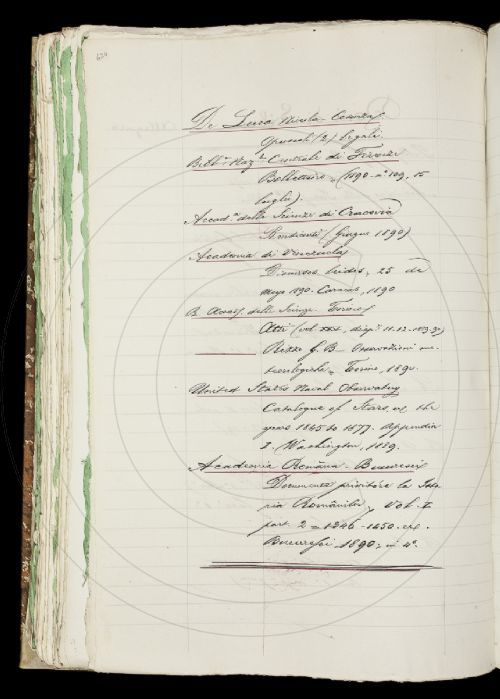 De Luca Nicola Cesare
Opuscoli (2) legali.
Bibl. Naz. Centrale di Firenze
Bollettino, (1890 - n° 109, 15
luglio).
Accad.a delle Scienze di Cracovia
Rendiconti (Giugno 1890)
Academia di Venezuela
Discursos leidos, 25 de
mayo 1890. Caracas, 1890
R. Accad. delle Scienze Torino
Atti (vol. XXV, disp. 11-12 - 1889-90)
Rizzo G. B. - Osservazioni me-
teorologiche = Torino, 1890.
United States Naval Observatory
Catalogue of Stars, the
years 1845 to 1877. Appendix
I. Washington, 1889.
Academia Română - Bucuresci
Documente privitóre la Isto-
ria Românilor, Vol. I
part. 2 = 1346 - 1450.
Bucuresci 1890, in 4°.